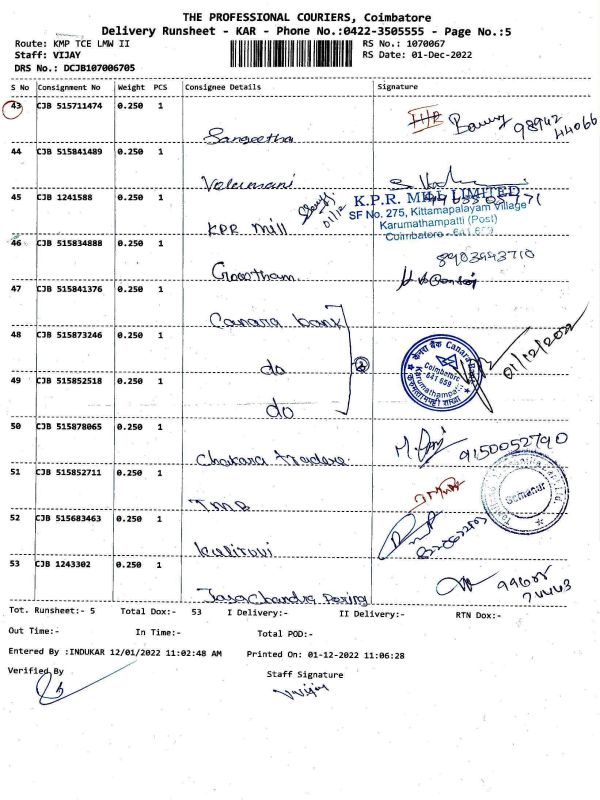 THE PROFESSIONAL COURIERS, Coimbatore
Delivery Runsheet - KAR - Phone No.:0422-3505555 - Page No.:5
Route: KMP TCE LMW II
RS No.: 1070067
Staff: VIJAY
RS Date: 01-Dec-2022
DRS No.: DCJB107006705
S No Consignment No Weight PCS Consignee Details Signature
43 CJB 515711474 0.250 1
Sangeetha
44 CJB 515841489 0.250 1
Velumani
45 CJB 1241588 0.250 1
KPR Mill 01/12
K.P.R. MILL LIMITED
SF No. 275, Kittamapalayam Village
Karumathampatti (Post)
Coimbatore - 641 659
46 CJB 515834888 0.250 1
Growtham
8903993710
47 CJB 515841376 0.250 1
Canara bank
48 CJB 515873246 0.250 1
do
केनरा बैंक Canara Bank
Coimbatore
641 659
01/12/2022
49 CJB 515852518 0.250 1
do
50 CJB 515878065 0.250 1
Chakara Traders
9150052790
51 CJB 515852711 0.250 1
TMB
Somanur
52 CJB 515683463 0.250 1
53 CJB 1243302 0.250 1
Tot. Runsheet:- 5 Total Dox:- 53 I Delivery:- II Delivery:- RTN Dox:-
Out Time:- In Time:- Total POD:-
Entered By :INDUKAR 12/01/2022 11:02:48 AM Printed On: 01-12-2022 11:06:28
Verified By
Staff Signature
Vijay